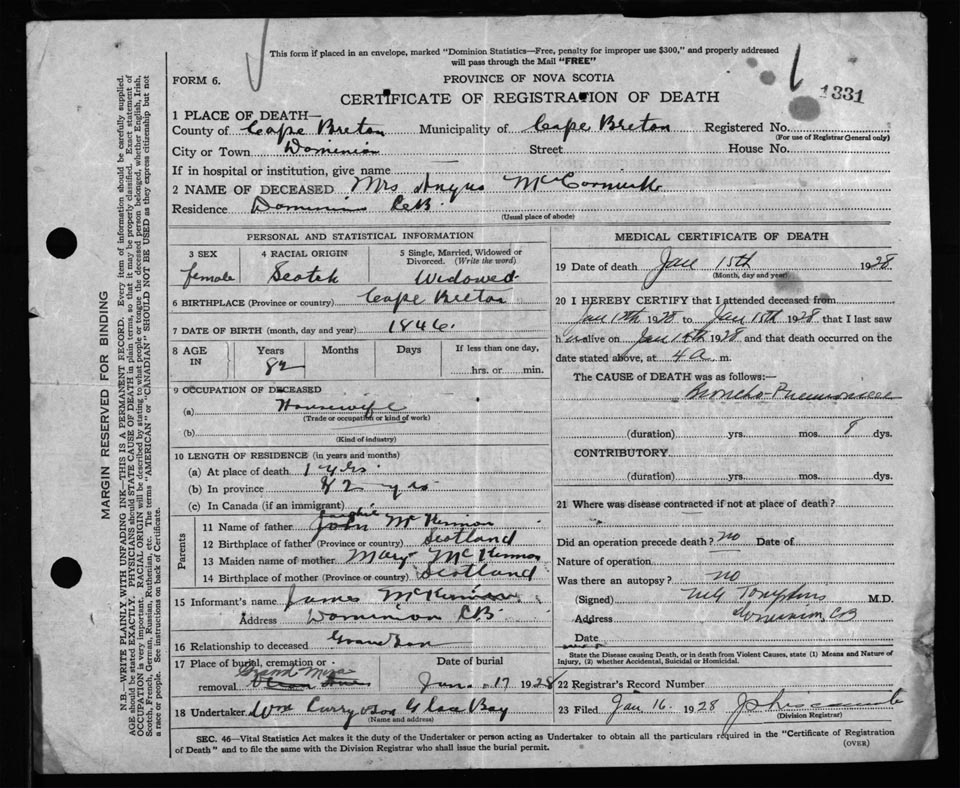 This form if placed in an envelope, marked "Dominion Statistics—Free, penalty for improper use $300," and properly addressed
will pass through the Mail "FREE"
FORM 6.
PROVINCE OF NOVA SCOTIA
1331
CERTIFICATE OF REGISTRATION OF DEATH
1 PLACE OF DEATH—
County of Cape Breton Municipality of Cape Breton Registered No.
(For use of Registrar General only)
City or Town Dominion Street House No.
If in hospital or institution, give name
2 NAME OF DECEASED Mrs Angus McCormick
Residence Dominion C.B.
(Usual place of abode)
PERSONAL AND STATISTICAL INFORMATION
3 SEX 4 RACIAL ORIGIN 5 Single, Married, Widowed or Divorced. (Write the word)
female Scotch Widowed
6 BIRTHPLACE (Province or country) Cape Breton
7 DATE OF BIRTH (month, day and year) 1846.
8 AGE IN Years Months Days If less than one day,
82 hrs. or min.
9 OCCUPATION OF DECEASED
(a) Housewife
(Trade or occupation or kind of work)
(b)
(Kind of industry)
10 LENGTH OF RESIDENCE (in years and months)
(a) At place of death 1 yrs.
(b) In province 82 yrs
(c) In Canada (if an immigrant)
Parents
11 Name of father John McKinnon
12 Birthplace of father (Province or country) Scotland
13 Maiden name of mother Mary McKinnon
14 Birthplace of mother (Province or country) Scotland
15 Informant's name James McKinnon
Address Dominion C.B.
16 Relationship to deceased Grand Son
17 Place of burial, cremation or removal Date of burial
Jan. 17 1928
18 Undertaker Wm Curry & Son Glace Bay
(Name and address)
MEDICAL CERTIFICATE OF DEATH
19 Date of death Jan 15th 1928
(Month, day and year)
20 I HEREBY CERTIFY that I attended deceased from
Jan 1928 to Jan 15th 1928 that I last saw
h alive on Jan 1928 and that death occurred on the
date stated above, at 4 a. m.
The CAUSE of DEATH was as follows:—
Broncho-Pneumonia
(duration) yrs. mos. 8 dys.
CONTRIBUTORY
(duration) yrs. mos. dys.
21 Where was disease contracted if not at place of death?
Did an operation precede death? no Date of
Nature of operation
Was there an autopsy? no
(Signed) Tompkins M.D.
Address Dominion, CB
Date
State the Disease causing Death, or in death from Violent Causes, state (1) Means and Nature of
Injury, (2) whether Accidental, Suicidal or Homicidal.
22 Registrar's Record Number
23 Filed Jan 16. 1928
(Division Registrar)
SEC. 46—Vital Statistics Act makes it the duty of the Undertaker or person acting as Undertaker to obtain all the particulars required in the "Certificate of Registration
of Death" and to file the same with the Division Registrar who shall issue the burial permit.
(OVER)
MARGIN RESERVED FOR BINDING
N.B.—WRITE PLAINLY WITH UNFADING INK—THIS IS A PERMANENT RECORD. Every item of information should be carefully supplied.
AGE should be stated EXACTLY. PHYSICIANS should STATE CAUSE OF DEATH in plain terms, so that it may be properly classified. Exact statement of
OCCUPATION is very important. RACIAL ORIGIN will be described by stating to what people or tongue the deceased person belonged, whether English, Irish,
Scotch, French, German, Russian, Ruthenian, etc. The terms "AMERICAN" or "CANADIAN" SHOULD NOT BE USED as they express citizenship but not
a race or people. See instructions on back of Certificate.